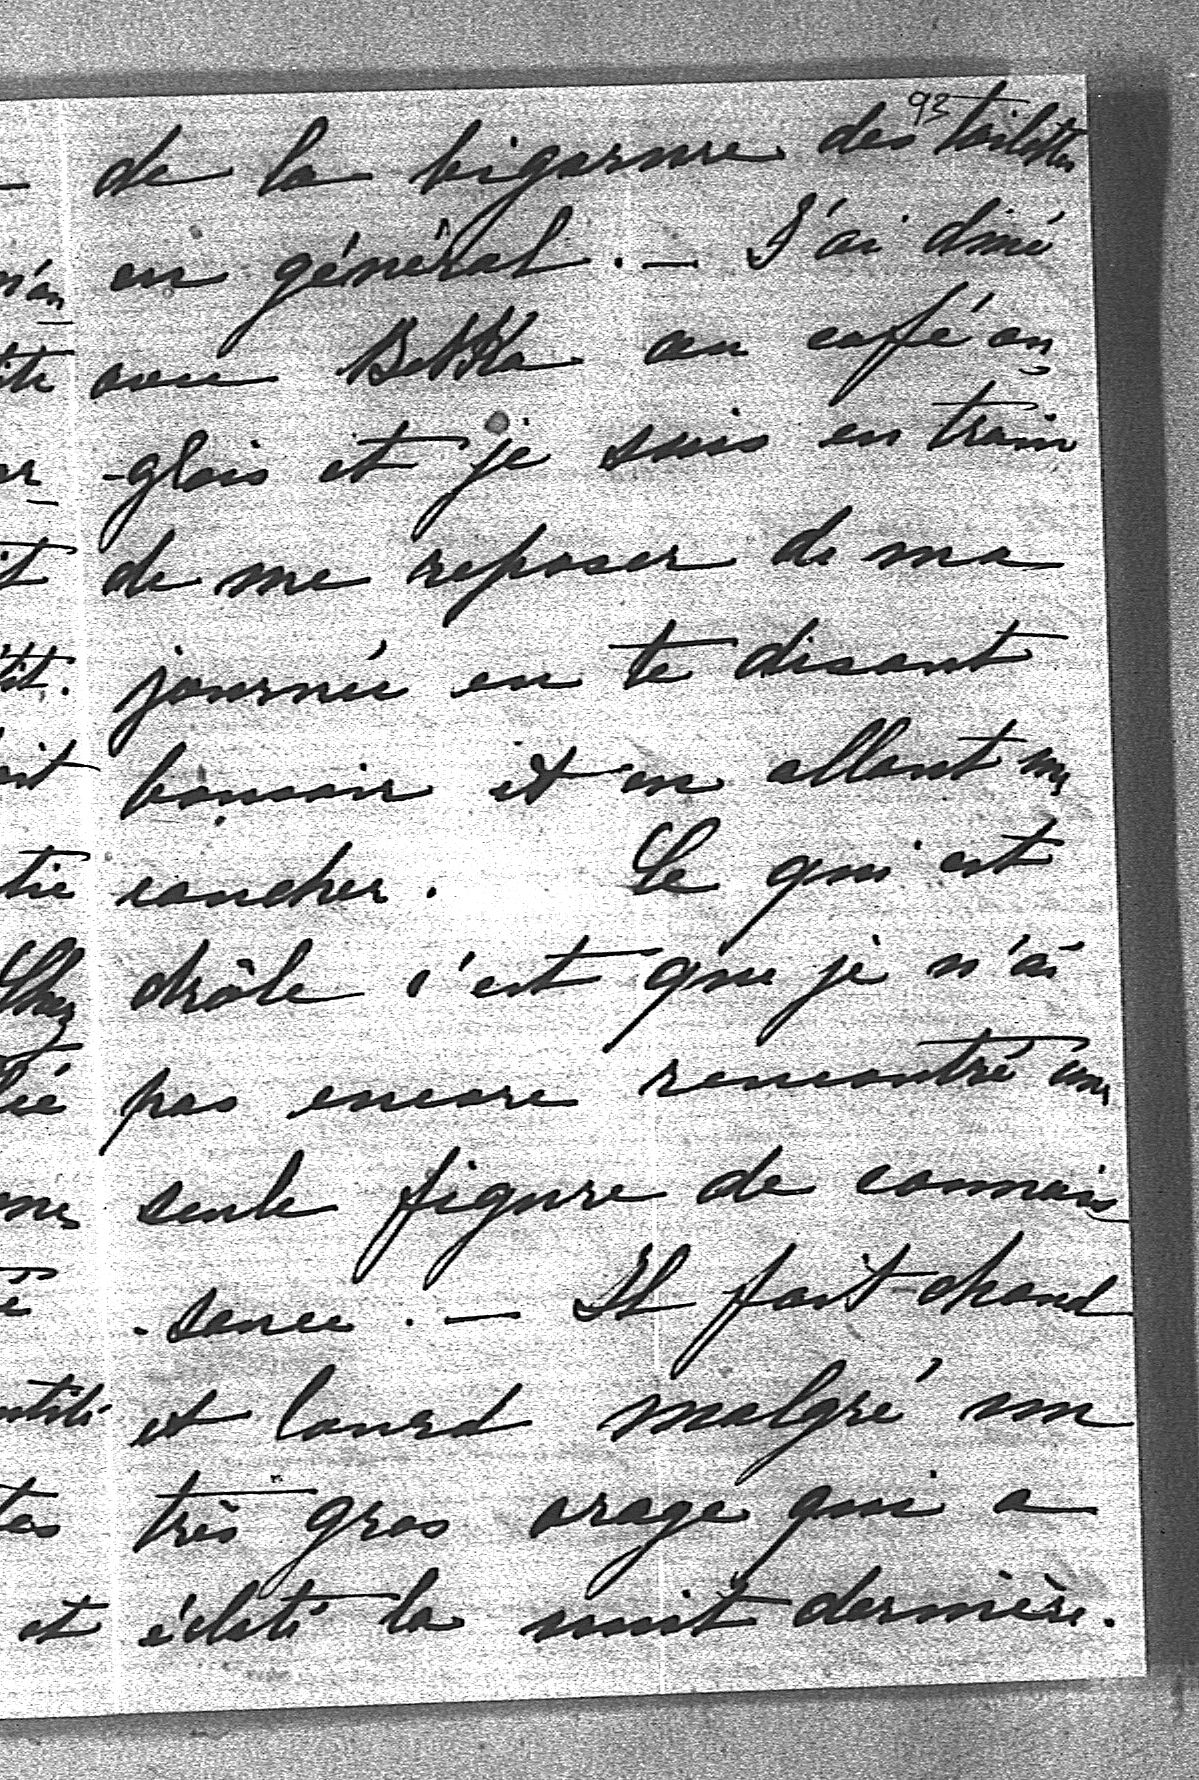 93
de la bigarrure des toilettes
en général. — J'ai diné
avec Bebka au café an
-glais et je suis en train
de me reposer de ma
journée en te disant
bonsoir et en allant me
coucher. Ce qui est
drôle c'est que je n'ai
pas encore rencontré une
seule figure de connais
-sance. — Il fait chaud
et lourd malgré un
très gros orage qui a
éclaté la nuit dernière.